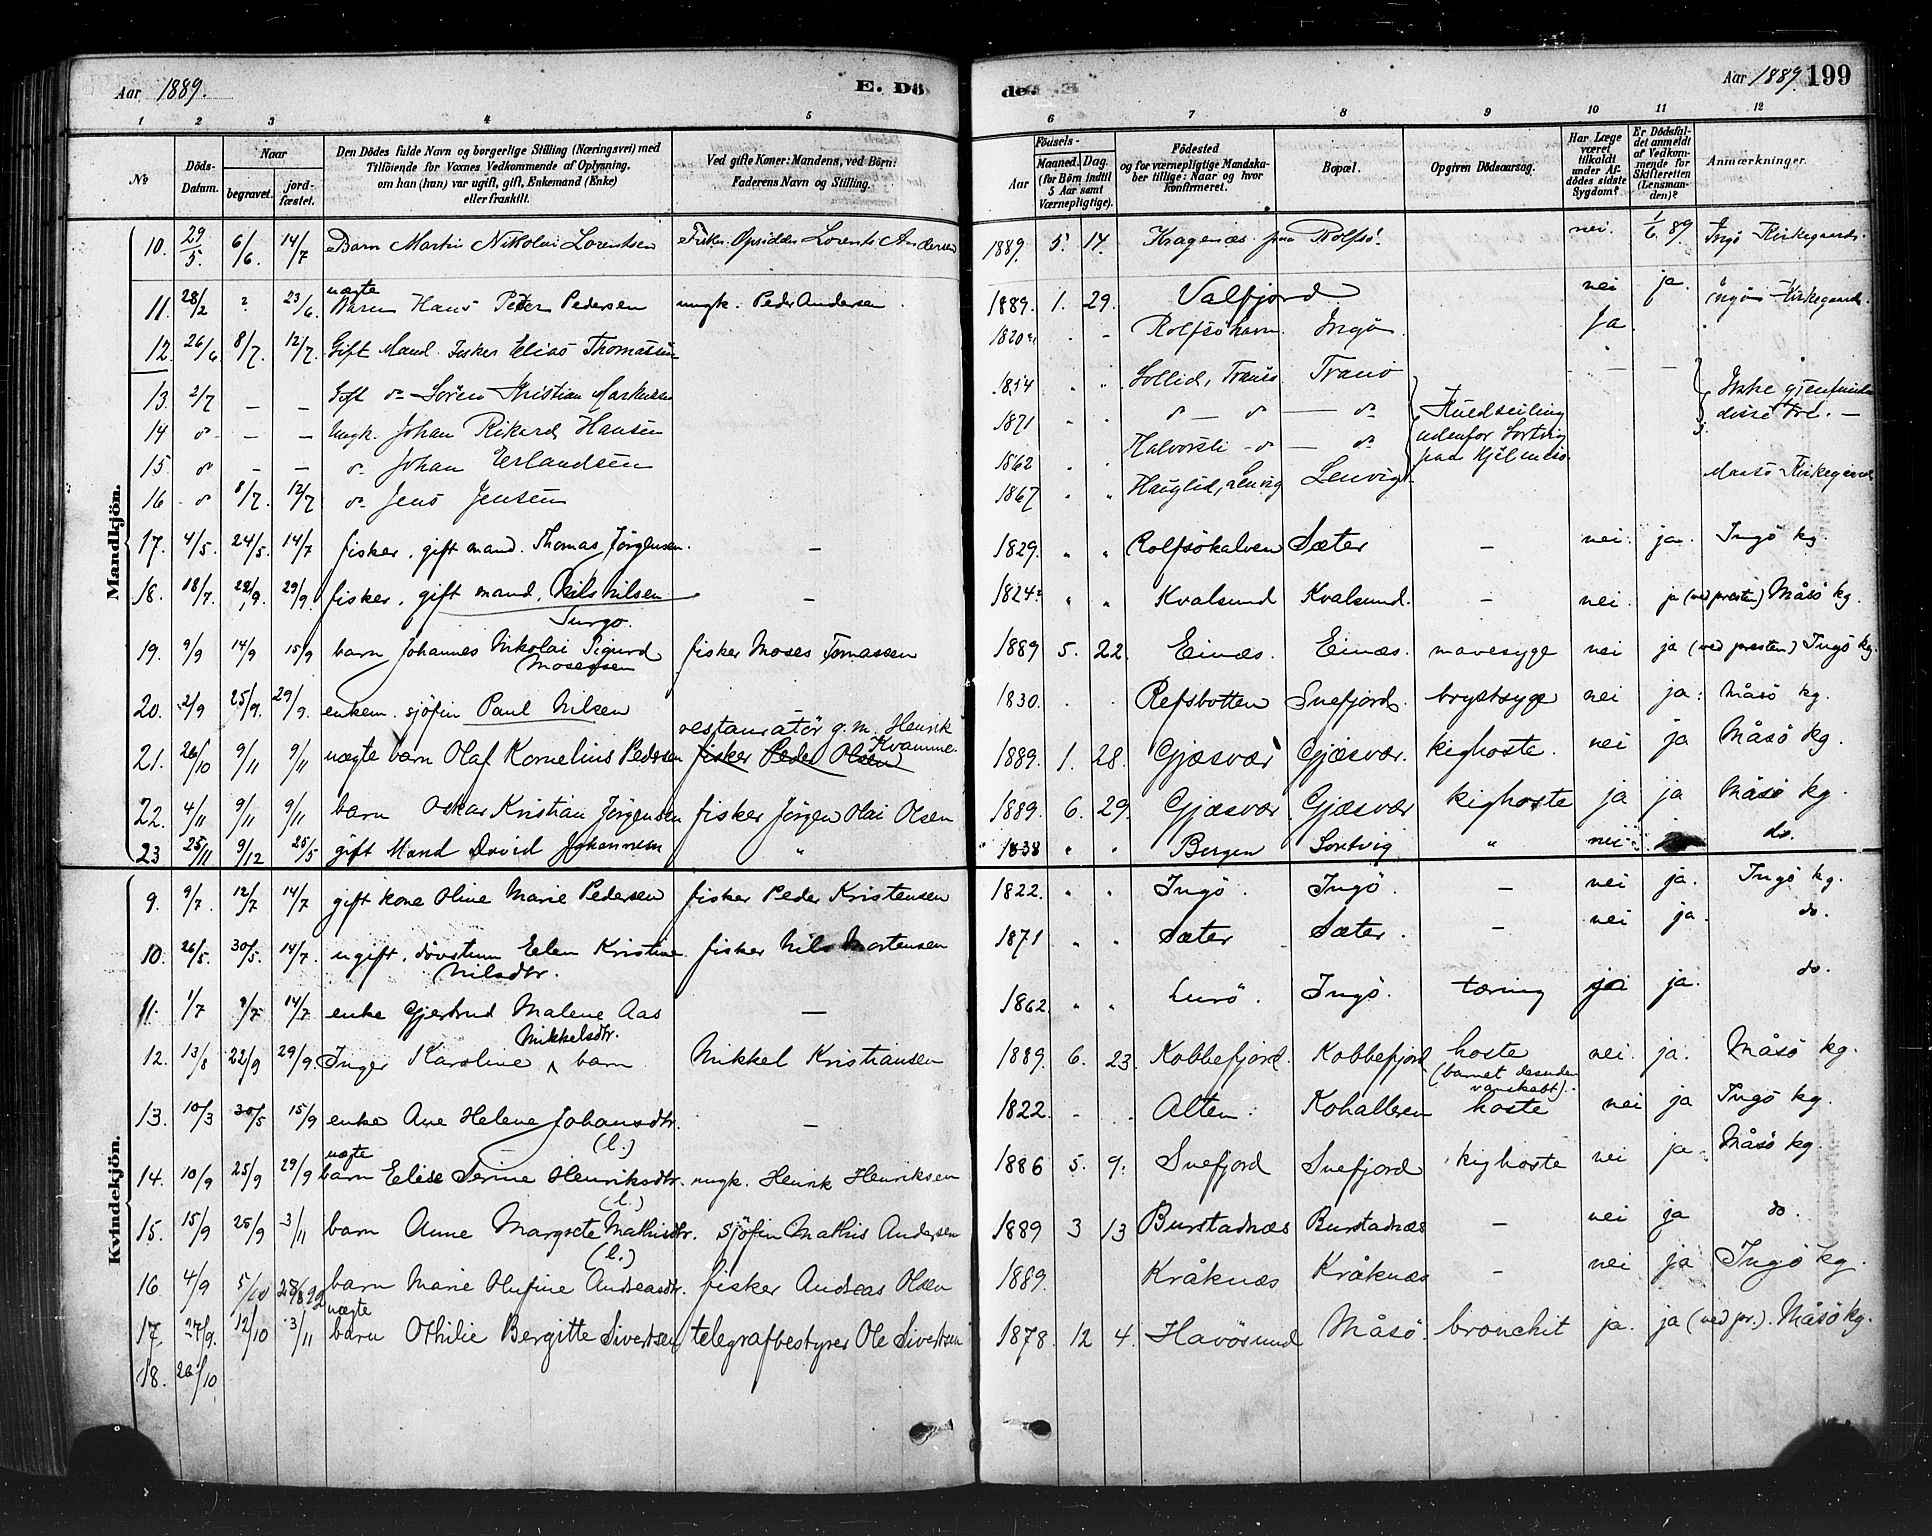 Aar 1889. E. Dö
de. Aar 1889. 199
1 2 3 4 5 6 7 8 9 10 11 12
No Döds-Datum. Naar begravet. jord-fæstet. Den Dödes fulde Navn og borgerlige Stilling (Næringsvei) med Tilföiende for Voxnes Vedkommende af Oplysning, om han (hun) var ugift, gift, Enkemand (Enke) eller fraskilt. Ved gifte Koner: Mandens, ved Börn: Faderens Navn og Stilling. Födsels- Aar Maaned. Dag. (for Börn indtil 5 Aar samt Værnepligtige). Födested og for værnepligtige Mandskaber tillige: Naar og hvor konfirmeret. Bopæl. Opgiven Dödsaarsag. Har Læge været tilkaldt under Afdödes sidste Sygdom? Er Dödsfaldet anmeldt af Vedkommende for Skifteretten (Lensmanden)? Anmærkninger.
Mandkjön.
10. 29/5. 6/6. 14/7 Barn Martin Nikolai Lorentsen Lorents Andersen 1889. 5. 14. Kragenæs paa Rolfsö. nei. 1/6 89. Ingö Kirkegaard.
11. 28/2 ? 23/6. uægte Barn Hans Peder Pedersen ungk. Peder Andersen 1889. 1. 29. Valfjord nei ja. Ingö Kirkegaard.
12. 26/6 8/7. 12/7. Gift Mand. Fisker Elias Thomassen 1820 Rolfsöhavn. Ingö. Ja
13. 2/7 — — Gift do Sören Kristian 1854 " " Sollid, Tranö Tranö Kuldseiling udenfor Sortvig paa Hjelmsö Ikke gjenfundne disse tre. —
14 do — — Ungk. Johan Rikard Hansen 1871 " " do — do — do
15. do — — do Johan Erlandsen 1862 " " Halvorsli do — do
16 do 8/7. 12/7 do Jens Jensen 1867 " " Hauglid, Lenvig Lenvig Maasö Kirkegaard
17. 4/5. 24/5. 14/7 fisker, gift mand. Thomas Jörgensen. — 1829. " " Rolfsökalven Sæter — nei. ja. Ingö kg.
18. 18/7. 22/9. 29/9. fisker, gift mand, Nils Nilsen Turgo. — 1824 " " Kvalsund Kvalsund. — nei. ja (ved presten) Måsö kg.
19. 9/9 14/9 15/9 barn Johannes Nikolai Sigurd Mosessen fisker Moses Tomassen 1889 5. 22. Einæs. Einæs. mavesyge nei ja (ved presten) Ingö kg.
20. 2/9 25/9. 29/9. enkem. sjöfin Paul Nilsen 1830. Refsbotten Snefjord. brystsyge nei ja. Måsö kg.
21. 26/10 9/11 9/11 uægte barn Olaf Kornelius Pedersen restauratör g.m. Henrik Kvamme. fisker Peder Olsen 1889. 1. 28. Gjæsvær Gjæsvær. kighoste. nei ja Måsö kg.
22. 4/11 9/11 9/11 barn Oskar Kristian Jörgensen fisker Jörgen Olai Olsen 1889. 6. 29. Gjæsvær. Gjæsvær kighoste ja ja Måsö kg.
23 25/11 9/12 25/5 gift Mand David Johannesen " 1838 " " Bergen Sortvig " nei do.
Kvindekjön.
9. 9/7. 12/7 14/7 gift kone Oline Marie Pedersen fisker Peder Kristensen 1822. " " Ingö. Ingö. — nei ja. Ingö kg.
10. 26/5. 30/5. 14/7. ugift, dövstum Elen Kristine Nilsdtr. fisker Nils Mortensen 1871 " " Sæter Sæter. — nei ja. do.
11. 1/7 9/7 14/7 enke Gjertrud Malene Aas — 1862. " " Lurö. Ingö. tæring ja ja. do.
12. 13/8 22/9 29/9. Inger Karoline Mikkelsdtr. barn Mikkel Kristiansen 1889. 6. 23. Kobbefjord. Kobbefjord hoste (barnet desuden vanskabt). nei. ja. Måsö kg.
13. 10/3 30/5 15/9 enke Ane Helene Johansdtr. (l.) — 1822. Alten. Kohalleren hoste nei ja Ingö kg.
14. 10/9 25/9 29/9 uægte barn Elise Serine Henriksdtr. (l.) ungk. Henrik Henriksen 1886 5. 9. Snefjord Snefjord kighoste nei ja. Måsö kg.
15. 15/9 25/9 3/11 barn Anne Margrete Mathisdtr. (l.) sjöfin Mathis Andersen 1889 3 13 Burstadnæs Burstadnæs — nei ja do.
16 4/9 5/10 28/8 92 barn Marie Olufine Andreasdtr. fisker Andreas Olsen 1889. Kråknæs Kråknæs — nei ja Ingö kg.
17. 27/9. 12/10 3/11 uægte barn Othilie Bergitte Sivertsen telegrafbestyrer Ole Sivertsen 1878. 12 4. Havösund Måsö. bronchit ja. ja (ved pr.). Måsö kg.
18. 26/10.